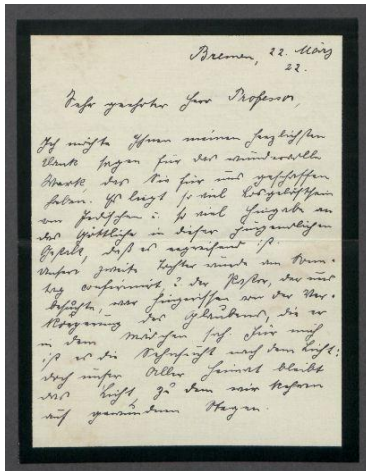 Bremen, 22. März
22.
Sehr geehrter Herr Professor,
Ich möchte Ihnen meinen herzlichsten
Dank sagen für das wundervolle
Werk, das Sie für uns geschaffen
haben. Es liegt so viel Losgelöstsein
vom Irdischen u. so viel Hingabe an
das Göttliche in dieser jugendlichen
Gestalt, daß es ergreifend ist.
Unsere zweite Tochter wurde am Sonn-
tag confirmirt, u. der Pastor, der uns
besuchte, war hingerissen von der Ver-
körperung des Glaubens, die er
in dem Mädchen sah. Für mich
ist es die Sehnsucht nach dem Licht;
doch unser Aller Heimat bleibt
das Licht, zu dem wir kehren
auf gewundenen Stegen.